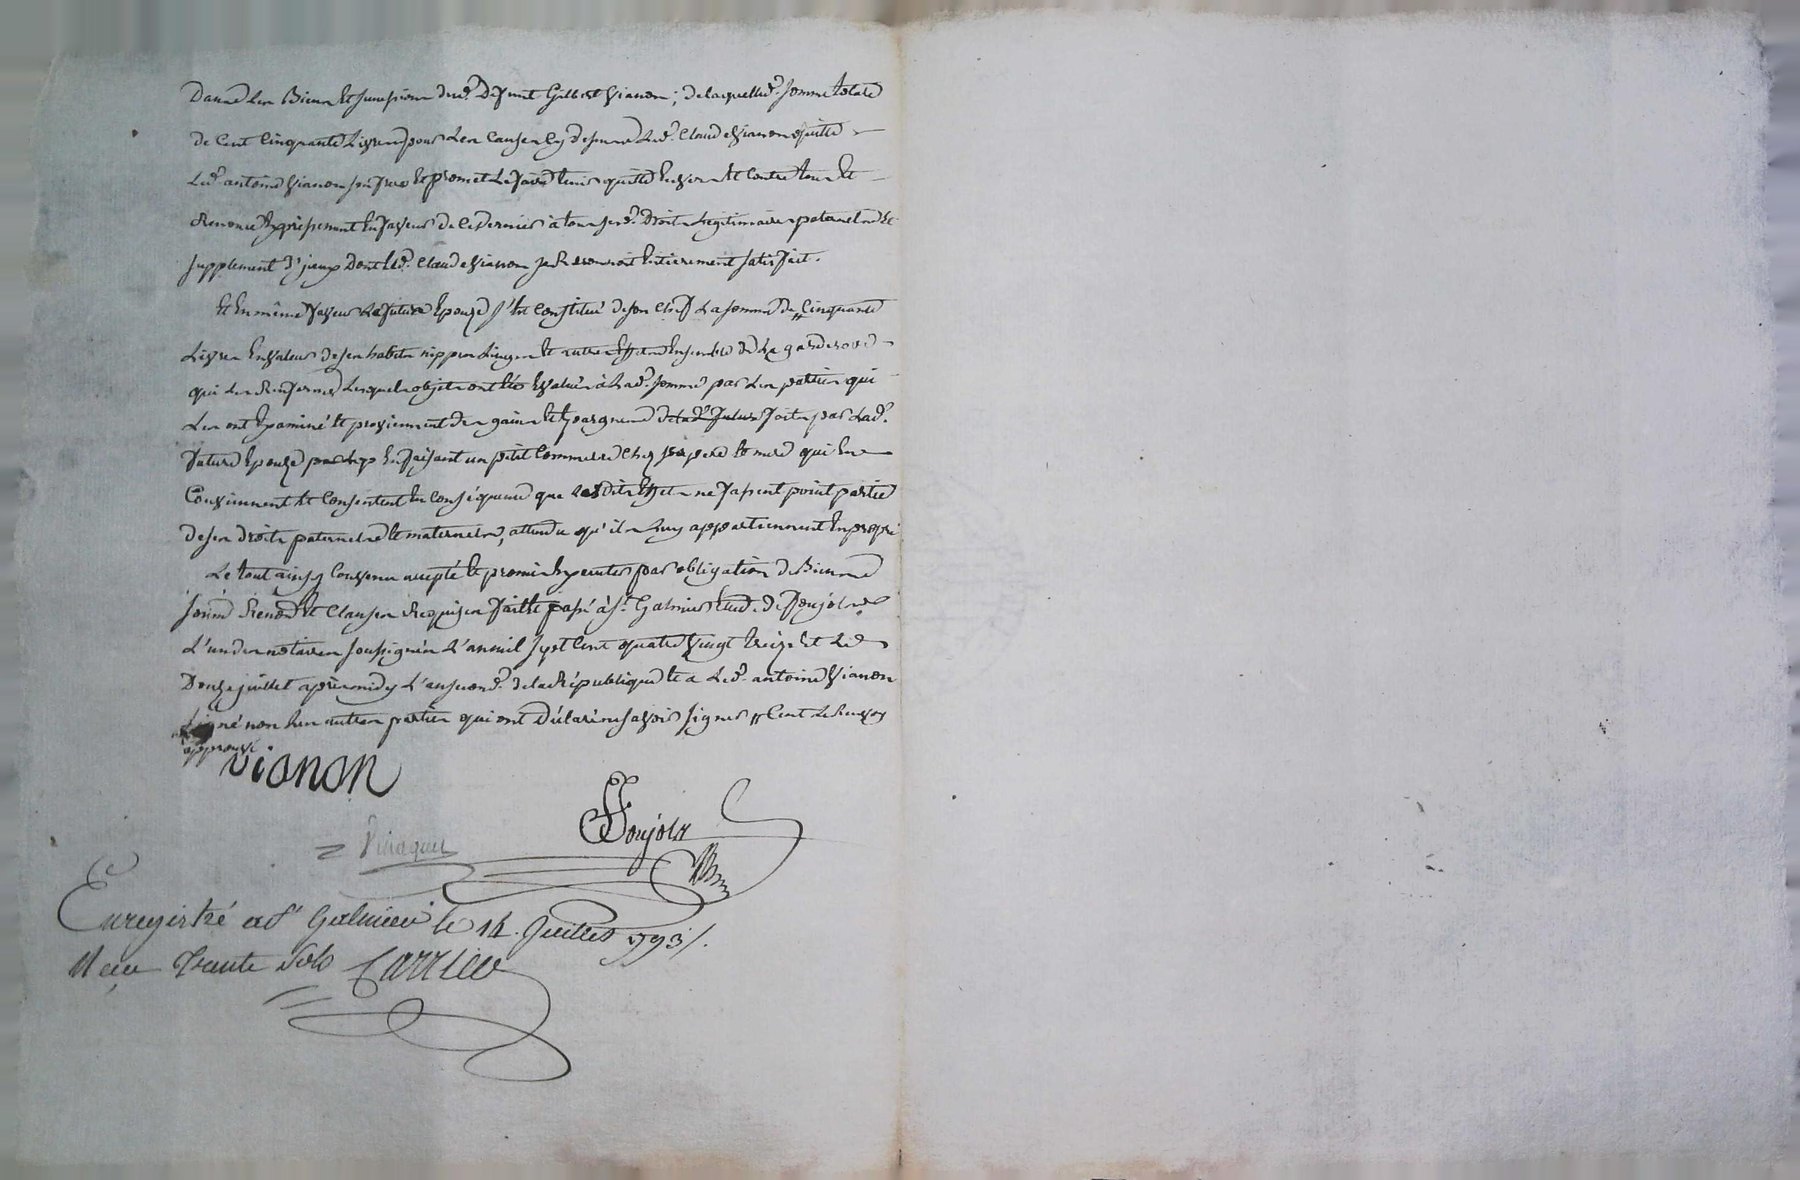 Dans les Biens et succession dud. Defunt Gilbert Vianon; de laquelle d. somme totale
de Cent Cinquante Livres pour les causes cy dessus led. Claude Vianon quitte
led. antoine Vianon son frere et promet le faire tenir quitte envers et contre tous et
Renonce Expressement en faveur de ce dernier à tous sesd. Droits Legitimaires paternels et
supplement d'iceux Dont led. Claude Vianon se Reconnoit entierement satisfait.
Et en même faveur la future Epouze s'est Constitué de son Chef la somme de Cinquante
Livres en valeur de ses habits nippes Linges et autres Effets Ensemble de la garderobe
qui les Renferme Lesquels objets ont été Evalués à lad. somme par les parties qui
Les ont Examiné et proviennent des gains et Epargnes faits par lad.
future Epouze en faisant un petit Commerce chez ses pere et mere qui en
Conviennent et Consentent en Conséquence que lesdits Effets ne fassent point partie
de ses droits paternels et maternels, attendu qu'ils luy appartiennent en propre
Le tout ainsy Convenu accepté et promis Executer par obligation de Biens
soumis Renon. et Clauses Requises fait et passé à St. Galmier Etude de Poujols
L'un des notaires soussignés L'an mil sept Cent quatre vingt treize et le
Douze juillet après midy L'an second de la République et a led. antoine Vianon
signé non les autres parties qui ont déclaré ne savoir signer
approuvé
Vianon
Poujols
Enregistré a St Galmier le 14 Juillet 1793 /.
Reçu trente sols Carrier